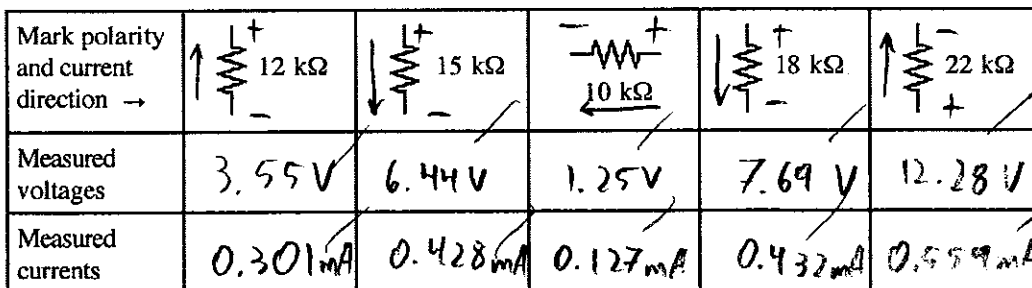 Mark polarity
and current
direction →
+
12 kΩ
−
+
15 kΩ
−
− +
10 kΩ
+
18 kΩ
−
−
22 kΩ
+
Measured
voltages
3.55 V
6.44 V
1.25 V
7.69 V
12.28 V
Measured
currents
0.301 mA
0.428 mA
0.127 mA
0.432 mA
0.559 mA